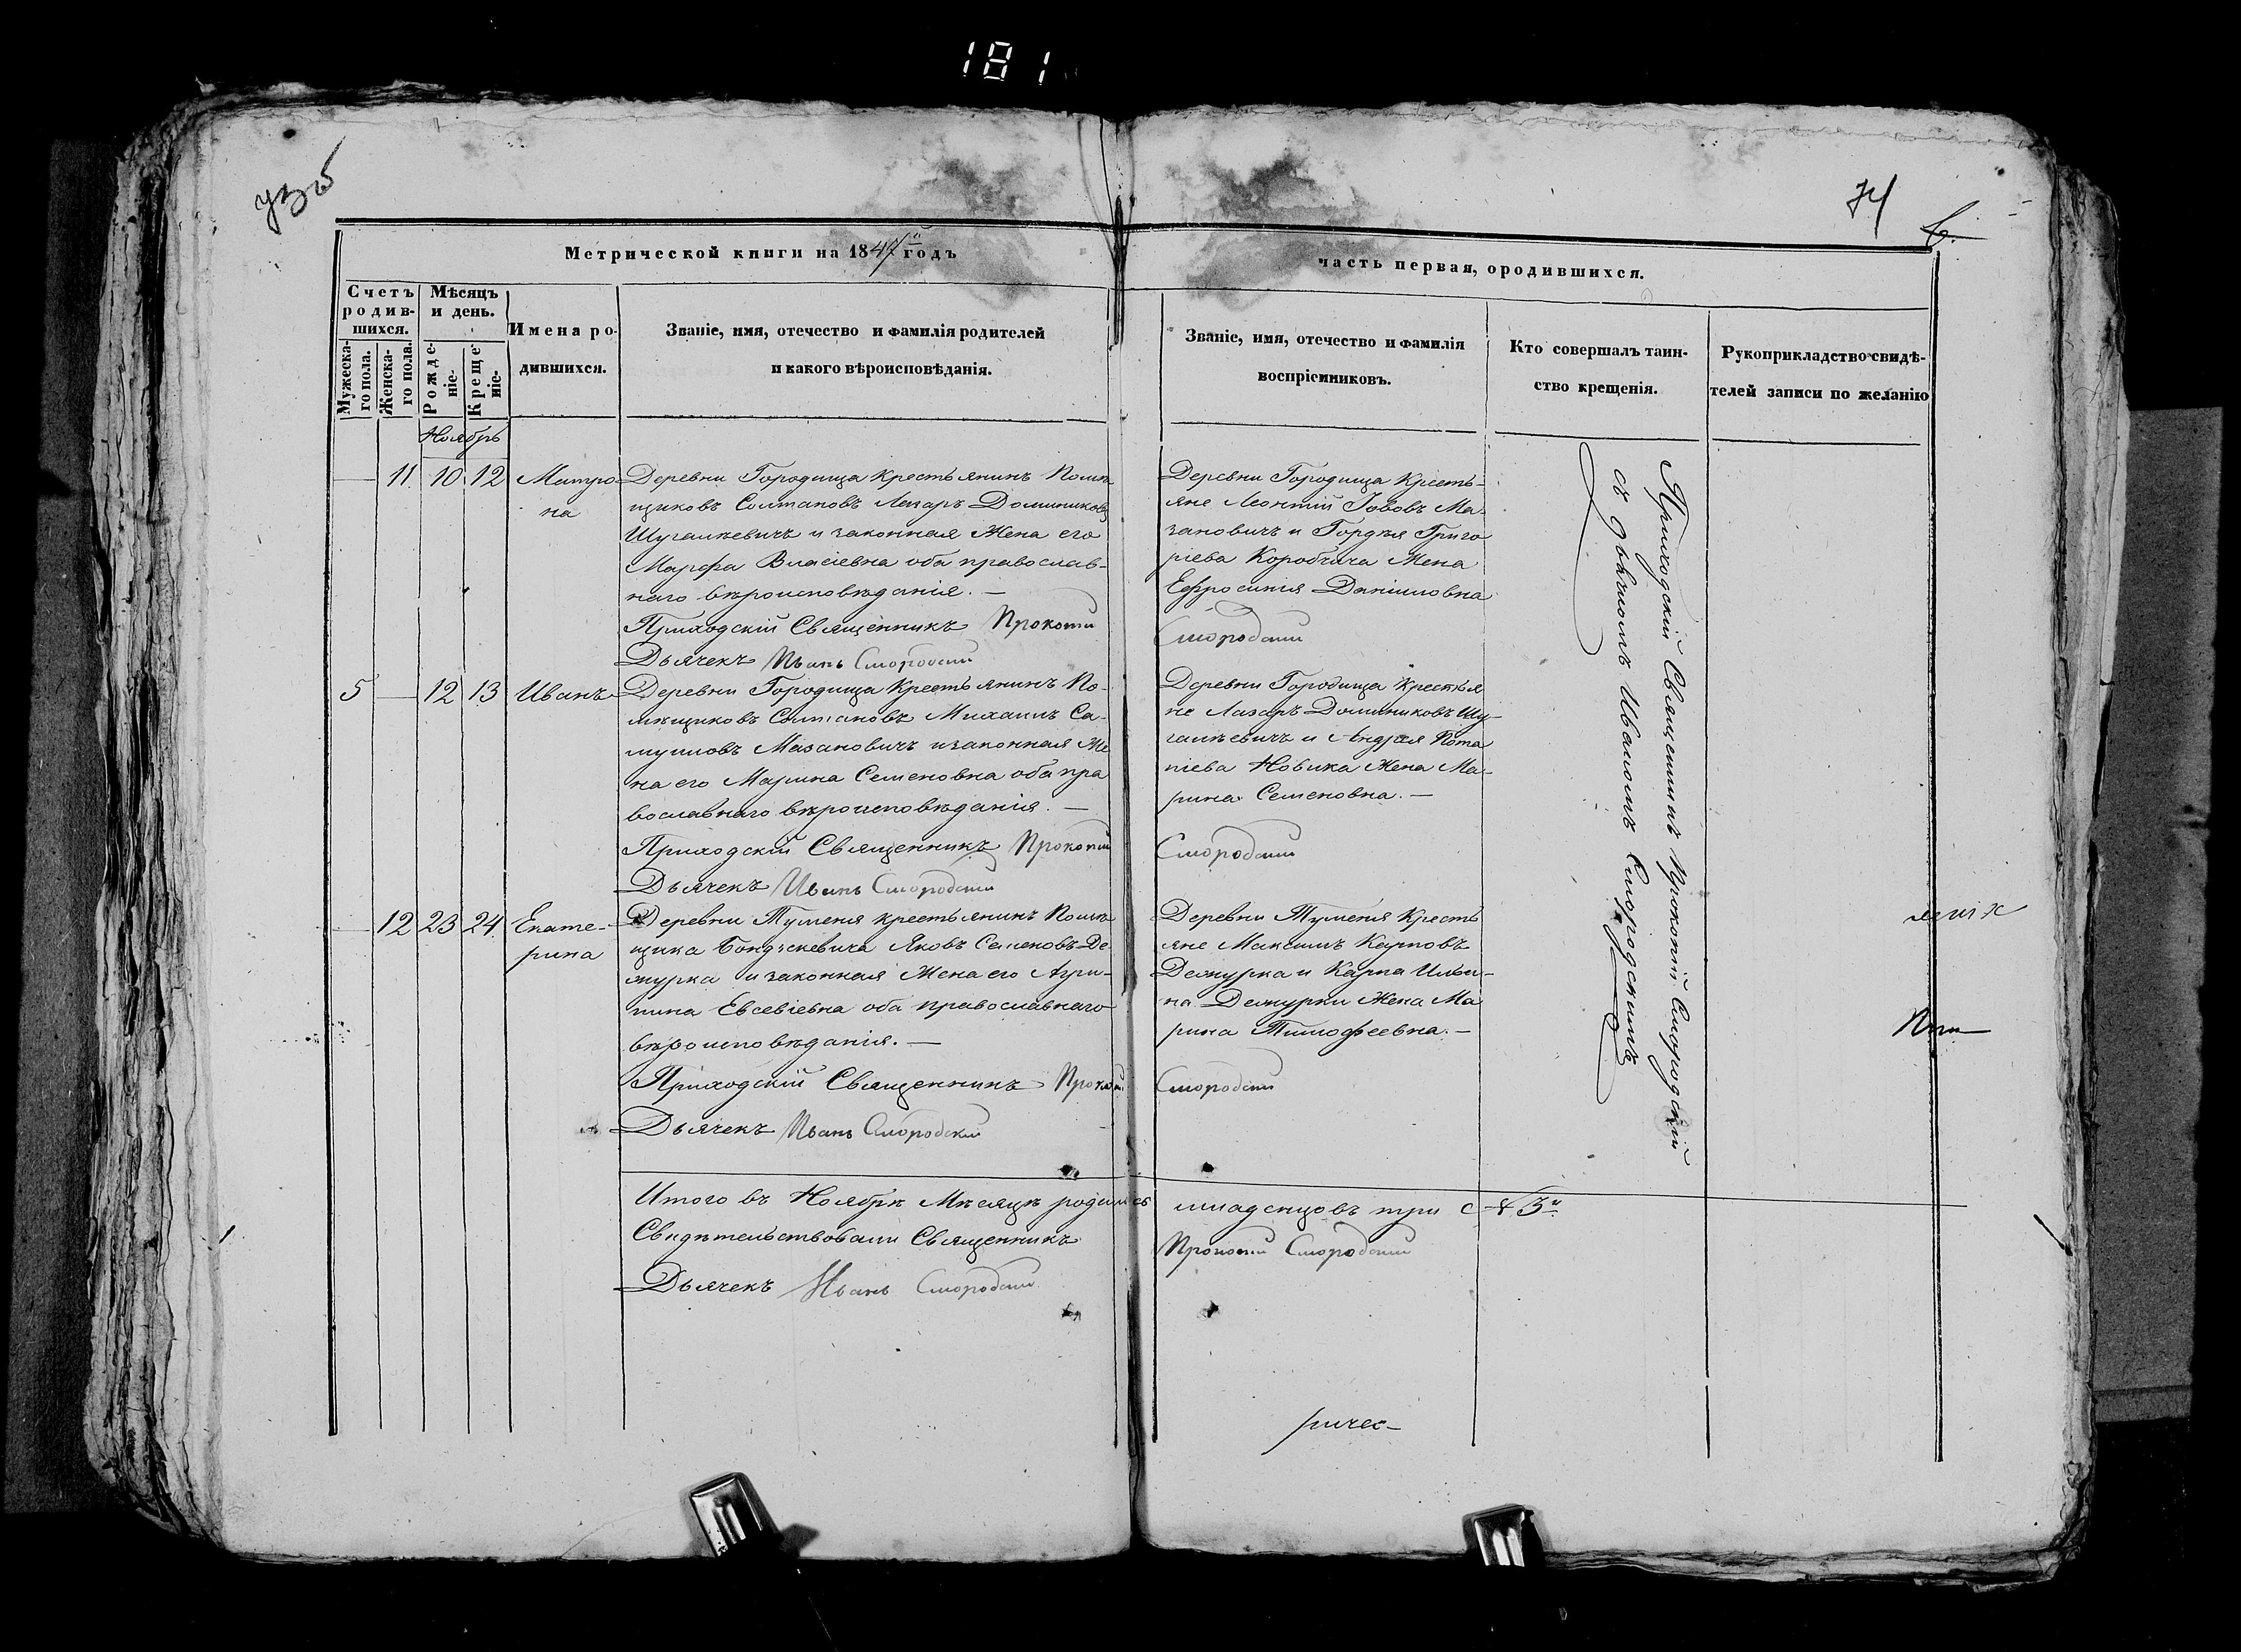 181
74
Метрической книги на 1847й годъ
часть первая, ородившихся.
Счетъ родив-шихся.
Мужеска-го пола.
Женска-го пола.
Мѣсяцъ и день.
Рожде-ніе.
Креще-ніе.
Имена ро-
дившихся.
Званіе, имя, отечество и фамилія родителей
и какого вѣроисповѣданія.
Званіе, имя, отечество и фамилія
воспріемниковъ.
Кто совершалъ таин-
ство крещенія.
Рукоприкладство свидѣ-
телей записи по желанію
Ноябрь
11 10 12
Матро
на
Деревни Городища Крестьянинъ Помѣ
щиковъ Солтановъ Лазаръ Доминиковъ
Шугалкевичъ и законная Жена его
Марфа Власіевна оба православ-
наго вѣроисповѣданія. —
Приходскій Священникъ Прокопій
Дьячекъ Иванъ Смородскій
Деревни Городища Кресть-
яне Леонтій Іововъ Ма-
зановичъ и Гордѣя Григо
ріева Коробчича Жена
Ефросинія Даніиловна
Смородскій
5 — 12 13 Иванъ
Деревни Городища Крестьянинъ По-
мѣщиковъ Солтановъ Михаилъ Са-
муиловъ Мазановичъ и законная Же
на его Марина Семеновна оба пра
вославнаго вѣроисповѣданія. —
Приходскій Священникъ Прокопій
Дьячекъ Иванъ Смородскій
Деревни Городища Крестья
не Лазаръ Доминиковъ Шу-
галкевичъ и Андрея Пота
піева Новика Жена Ма-
рина Семеновна. —
Смородскій
— 12 23 24
Екате-
рина
Деревни Туменя крестьянинъ Помѣ
щика Яковъ Семеновъ Де
журка и законная Жена его Агри-
пина Евсевіевна оба православнаго
вѣроисповѣданія. —
Приходскій Священникъ Прокопій
Дьячекъ Иванъ Смородскій
Деревни Туменя Кресть
яне Максимъ Карповъ
Дежурка и Карпа Ильи-
на Дежурки Жена Ма
рина Тимофеевна. —
Смородскій
Приходскій Священникъ Прокопій Смородскій
съ Дьячкомъ Иваномъ Смородскимъ
Итого въ Ноябрѣ Мѣсяцѣ родились младенцовъ три
Свидѣтельствовали Священникъ Прокопій Смородскій
Дьячекъ Иванъ Смородскій
ричес-